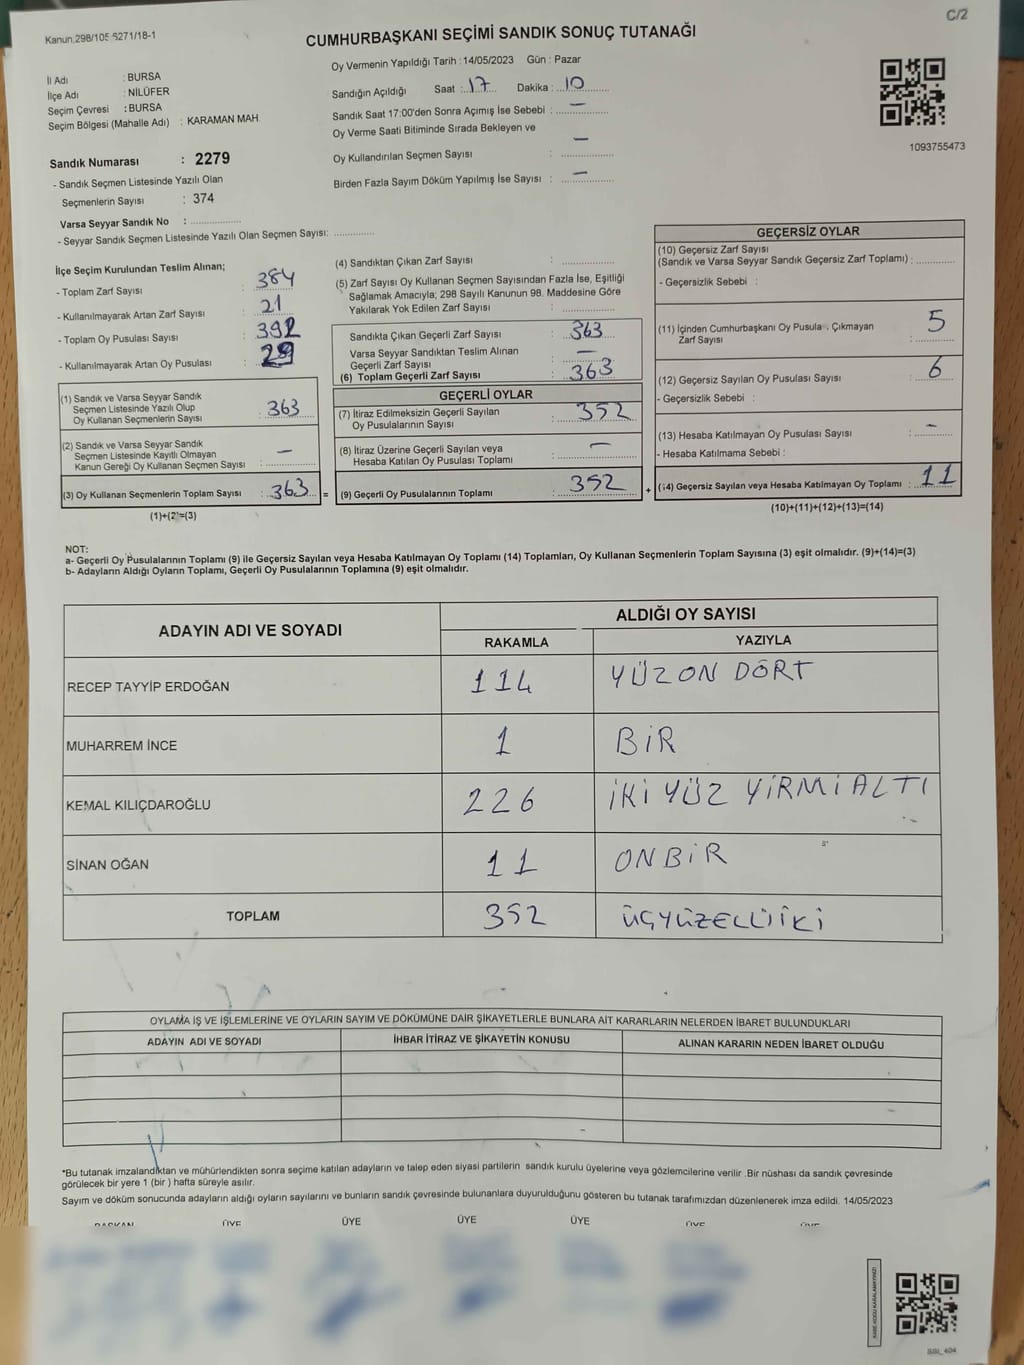 C/2
Kanun.298/105 5271/18-1
CUMHURBAŞKANI SEÇİMİ SANDIK SONUÇ TUTANAĞI
Oy Vermenin Yapıldığı Tarih : 14/05/2023 Gün : Pazar
İl Adı : BURSA
İlçe Adı : NİLÜFER
Seçim Çevresi : BURSA
Seçim Bölgesi (Mahalle Adı) : KARAMAN MAH
Sandık Numarası : 2279
- Sandık Seçmen Listesinde Yazılı Olan
Seçmenlerin Sayısı : 374
Varsa Seyyar Sandık No : ....................
- Seyyar Sandık Seçmen Listesinde Yazılı Olan Seçmen Sayısı: ..............
Sandığın Açıldığı Saat : 17 Dakika : 10
Sandık Saat 17:00'den Sonra Açımış İse Sebebi : —
Oy Verme Saati Bitiminde Sırada Bekleyen ve
Oy Kullandırılan Seçmen Sayısı : —
Birden Fazla Sayım Döküm Yapılmış İse Sayısı : —
1093755473
İlçe Seçim Kurulundan Teslim Alınan;
- Toplam Zarf Sayısı : 384
- Kullanılmayarak Artan Zarf Sayısı : 21
- Toplam Oy Pusulası Sayısı : 392
- Kullanılmayarak Artan Oy Pusulası : 29
(1) Sandık ve Varsa Seyyar Sandık
Seçmen Listesinde Yazılı Olup
Oy Kullanan Seçmenlerin Sayısı : 363
(2) Sandık ve Varsa Seyyar Sandık
Seçmen Listesinde Kayıtlı Olmayan
Kanun Gereği Oy Kullanan Seçmen Sayısı : —
(3) Oy Kullanan Seçmenlerin Toplam Sayısı : 363 =
(1)+(2)=(3)
(4) Sandıktan Çıkan Zarf Sayısı : ..............
(5) Zarf Sayısı Oy Kullanan Seçmen Sayısından Fazla İse, Eşitliği
Sağlamak Amacıyla; 298 Sayılı Kanunun 98. Maddesine Göre
Yakılarak Yok Edilen Zarf Sayısı : ..............
Sandıkta Çıkan Geçerli Zarf Sayısı : 363
Varsa Seyyar Sandıktan Teslim Alınan
Geçerli Zarf Sayısı : —
(6) Toplam Geçerli Zarf Sayısı : 363
GEÇERLİ OYLAR
(7) İtiraz Edilmeksizin Geçerli Sayılan
Oy Pusulalarının Sayısı : 352
(8) İtiraz Üzerine Geçerli Sayılan veya
Hesaba Katılan Oy Pusulası Toplamı : —
(9) Geçerli Oy Pusulalarının Toplamı : 352 +
GEÇERSİZ OYLAR
(10) Geçersiz Zarf Sayısı
(Sandık ve Varsa Seyyar Sandık Geçersiz Zarf Toplamı) : ..........
- Geçersizlik Sebebi :
(11) İçinden Cumhurbaşkanı Oy Pusula. Çıkmayan
Zarf Sayısı : 5
(12) Geçersiz Sayılan Oy Pusulası Sayısı : 6
- Geçersizlik Sebebi :
(13) Hesaba Katılmayan Oy Pusulası Sayısı : —
- Hesaba Katılmama Sebebi :
(14) Geçersiz Sayılan veya Hesaba Katılmayan Oy Toplamı : 11
(10)+(11)+(12)+(13)=(14)
NOT:
a- Geçerli Oy Pusulalarının Toplamı (9) ile Geçersiz Sayılan veya Hesaba Katılmayan Oy Toplamı (14) Toplamları, Oy Kullanan Seçmenlerin Toplam Sayısına (3) eşit olmalıdır. (9)+(14)=(3)
b- Adayların Aldığı Oyların Toplamı, Geçerli Oy Pusulalarının Toplamına (9) eşit olmalıdır.
ADAYIN ADI VE SOYADI
ALDIĞI OY SAYISI
RAKAMLA YAZIYLA
RECEP TAYYİP ERDOĞAN 114 YÜZ ON DÖRT
MUHARREM İNCE 1 BİR
KEMAL KILIÇDAROĞLU 226 İKİ YÜZ YİRMİ ALTI
SİNAN OĞAN 11 ONBİR
TOPLAM 352 ÜÇYÜZELLİİKİ
OYLAMA İŞ VE İŞLEMLERİNE VE OYLARIN SAYIM VE DÖKÜMÜNE DAİR ŞİKAYETLERLE BUNLARA AİT KARARLARIN NELERDEN İBARET BULUNDUKLARI
ADAYIN ADI VE SOYADI İHBAR İTİRAZ VE ŞİKAYETİN KONUSU ALINAN KARARIN NEDEN İBARET OLDUĞU
*Bu tutanak imzalandıktan ve mühürlendikten sonra seçime katılan adayların ve talep eden siyasi partilerin sandık kurulu üyelerine veya gözlemcilerine verilir .Bir nüshası da sandık çevresinde
görülecek bir yere 1 (bir ) hafta süreyle asılır.
Sayım ve döküm sonucunda adayların aldığı oyların sayılarını ve bunların sandık çevresinde bulunanlara duyurulduğunu gösteren bu tutanak tarafımızdan düzenlenerek imza edildi. 14/05/2023
BAŞKAN ÜYE ÜYE ÜYE ÜYE ÜYE ÜYE